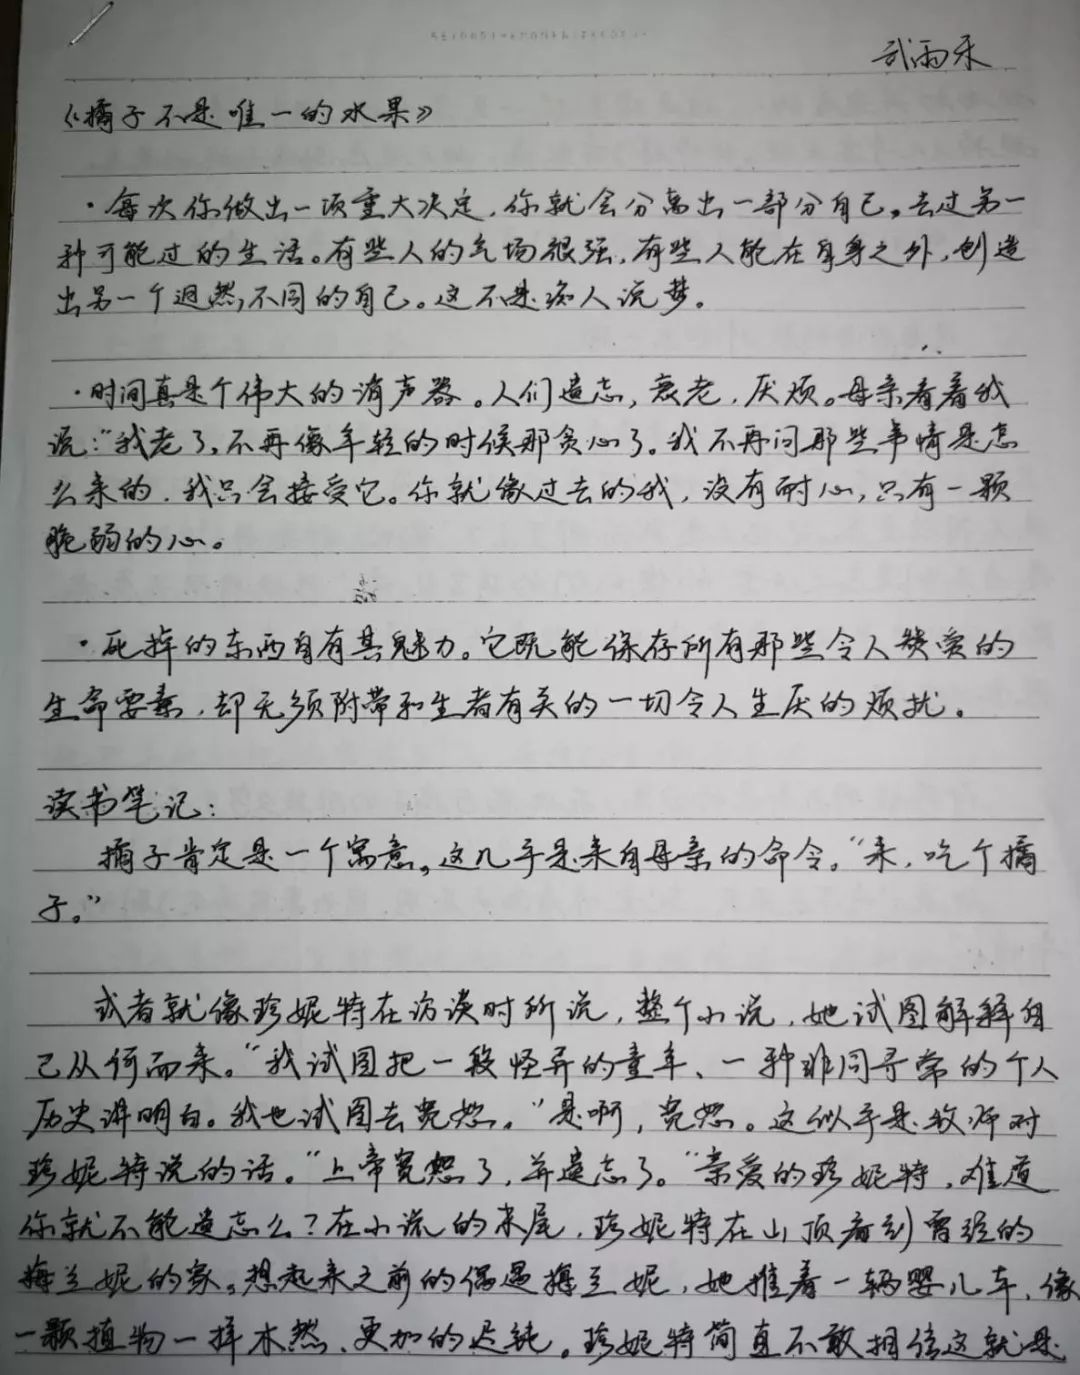 武雨禾
《橘子不是唯一的水果》
·每次你做出一项重大决定，你就会分离出一部分自己。去过另一
种可能过的生活。有些人的气场很强，有些人能在自身之外，创造
出另一个迥然不同的自己。这不是痴人说梦。
·时间真是个伟大的消声器。人们遗忘，衰老，厌烦。母亲看着我
说：“我老了，不再像年轻的时候那贪心了。我不再问那些事情是怎
么来的，我只会接受它。你就像过去的我，没有耐心，只有一颗
脆弱的心。
·死掉的东西自有其魅力。它既能保存所有那些令人赞赏的
生命要素，却无须附带和生者有关的一切令人生厌的烦扰。
读书笔记：
橘子肯定是一个寓意。这几乎是来自母亲的命令。“来，吃个橘
子。”
或者就像珍妮特在访谈时所说，整个小说，她试图解释自
己从何而来。“我试图把一段怪异的童年、一种非同寻常的个人
历史讲明白。我也试图去宽恕。”是啊，宽恕。这似乎是牧师对
珍妮特说的话。“上帝宽恕了，并遗忘了。”亲爱的珍妮特，难道
你就不能遗忘么？在小说的末尾，珍妮特在山顶看到曾经的
梅兰妮的家。想起来之前的偶遇梅兰妮，她推着一辆婴儿车，像
一颗植物一样木然、更加的迟钝。珍妮特简直不敢相信这就是